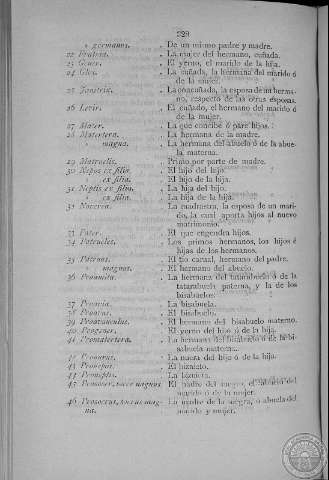 328
» germanus. . De un mismo padre y madre.
22 Fratria. . La mujer del hermano, cuñada.
23 Gener. . El yerno, el marido de la hija.
24 Glos. . La cuñada, la hermana del marido ó
de la mujer.
25 . La concuñada, la esposa de un herma-
no, respecto de las otras esposas.
26 Levir. . El cuñado, el hermano del marido ó
de la mujer.
27 Mater. . La que concibe ó pare hijos.
28 Matertera. . La hermana de la madre.
» magna. . La hermana del abuelo ó de la abue-
la materna.
29 Matruelis. . Primo por parte de madre.
30 Nepos ex filio. . El hijo del hijo.
» ex filia. . El hijo de la hija.
31 Neptis ex filio. . La hija del hijo.
» ex filia. . La hija de la hija.
32 Noverca. . La madrastra, la esposa de un mari-
do, la cual aporta hijos al nuevo
matrimonio.
33 Pater. . El que engendra hijos.
34 Patrueles. . Los primos hermanos, los hijos é
hijas de los hermanos.
35 Patruus. . El tio carnal, hermano del padre.
» magnus. . El hermano del abuelo.
36 . La hermana del tatarabuelo ó de la
tatarabuela paterna, y la de los
bisabuelos.
37 Proavia. . La bisabuela.
38 Proavus. . El bisabuelo.
39 Proavunculus. . El hermano del bisabuelo materno.
40 Progener. . El yerno del hijo ó de la hija.
41 Promatertera. . La hermana del bisabuelo ó de la bi-
sabuela materna.
42 Pronurus. . La nuera del hijo ó de la hija.
43 Pronepos. . El biznieto.
44 Proneptis. . La biznieta.
45 Prosocer, socer magnus. El padre del suegro, el abuelo del
marido ó de la mujer.
46 Prosocrus, socrus mag-
na. . La madre de la suegra, ó abuela del
marido y mujer.